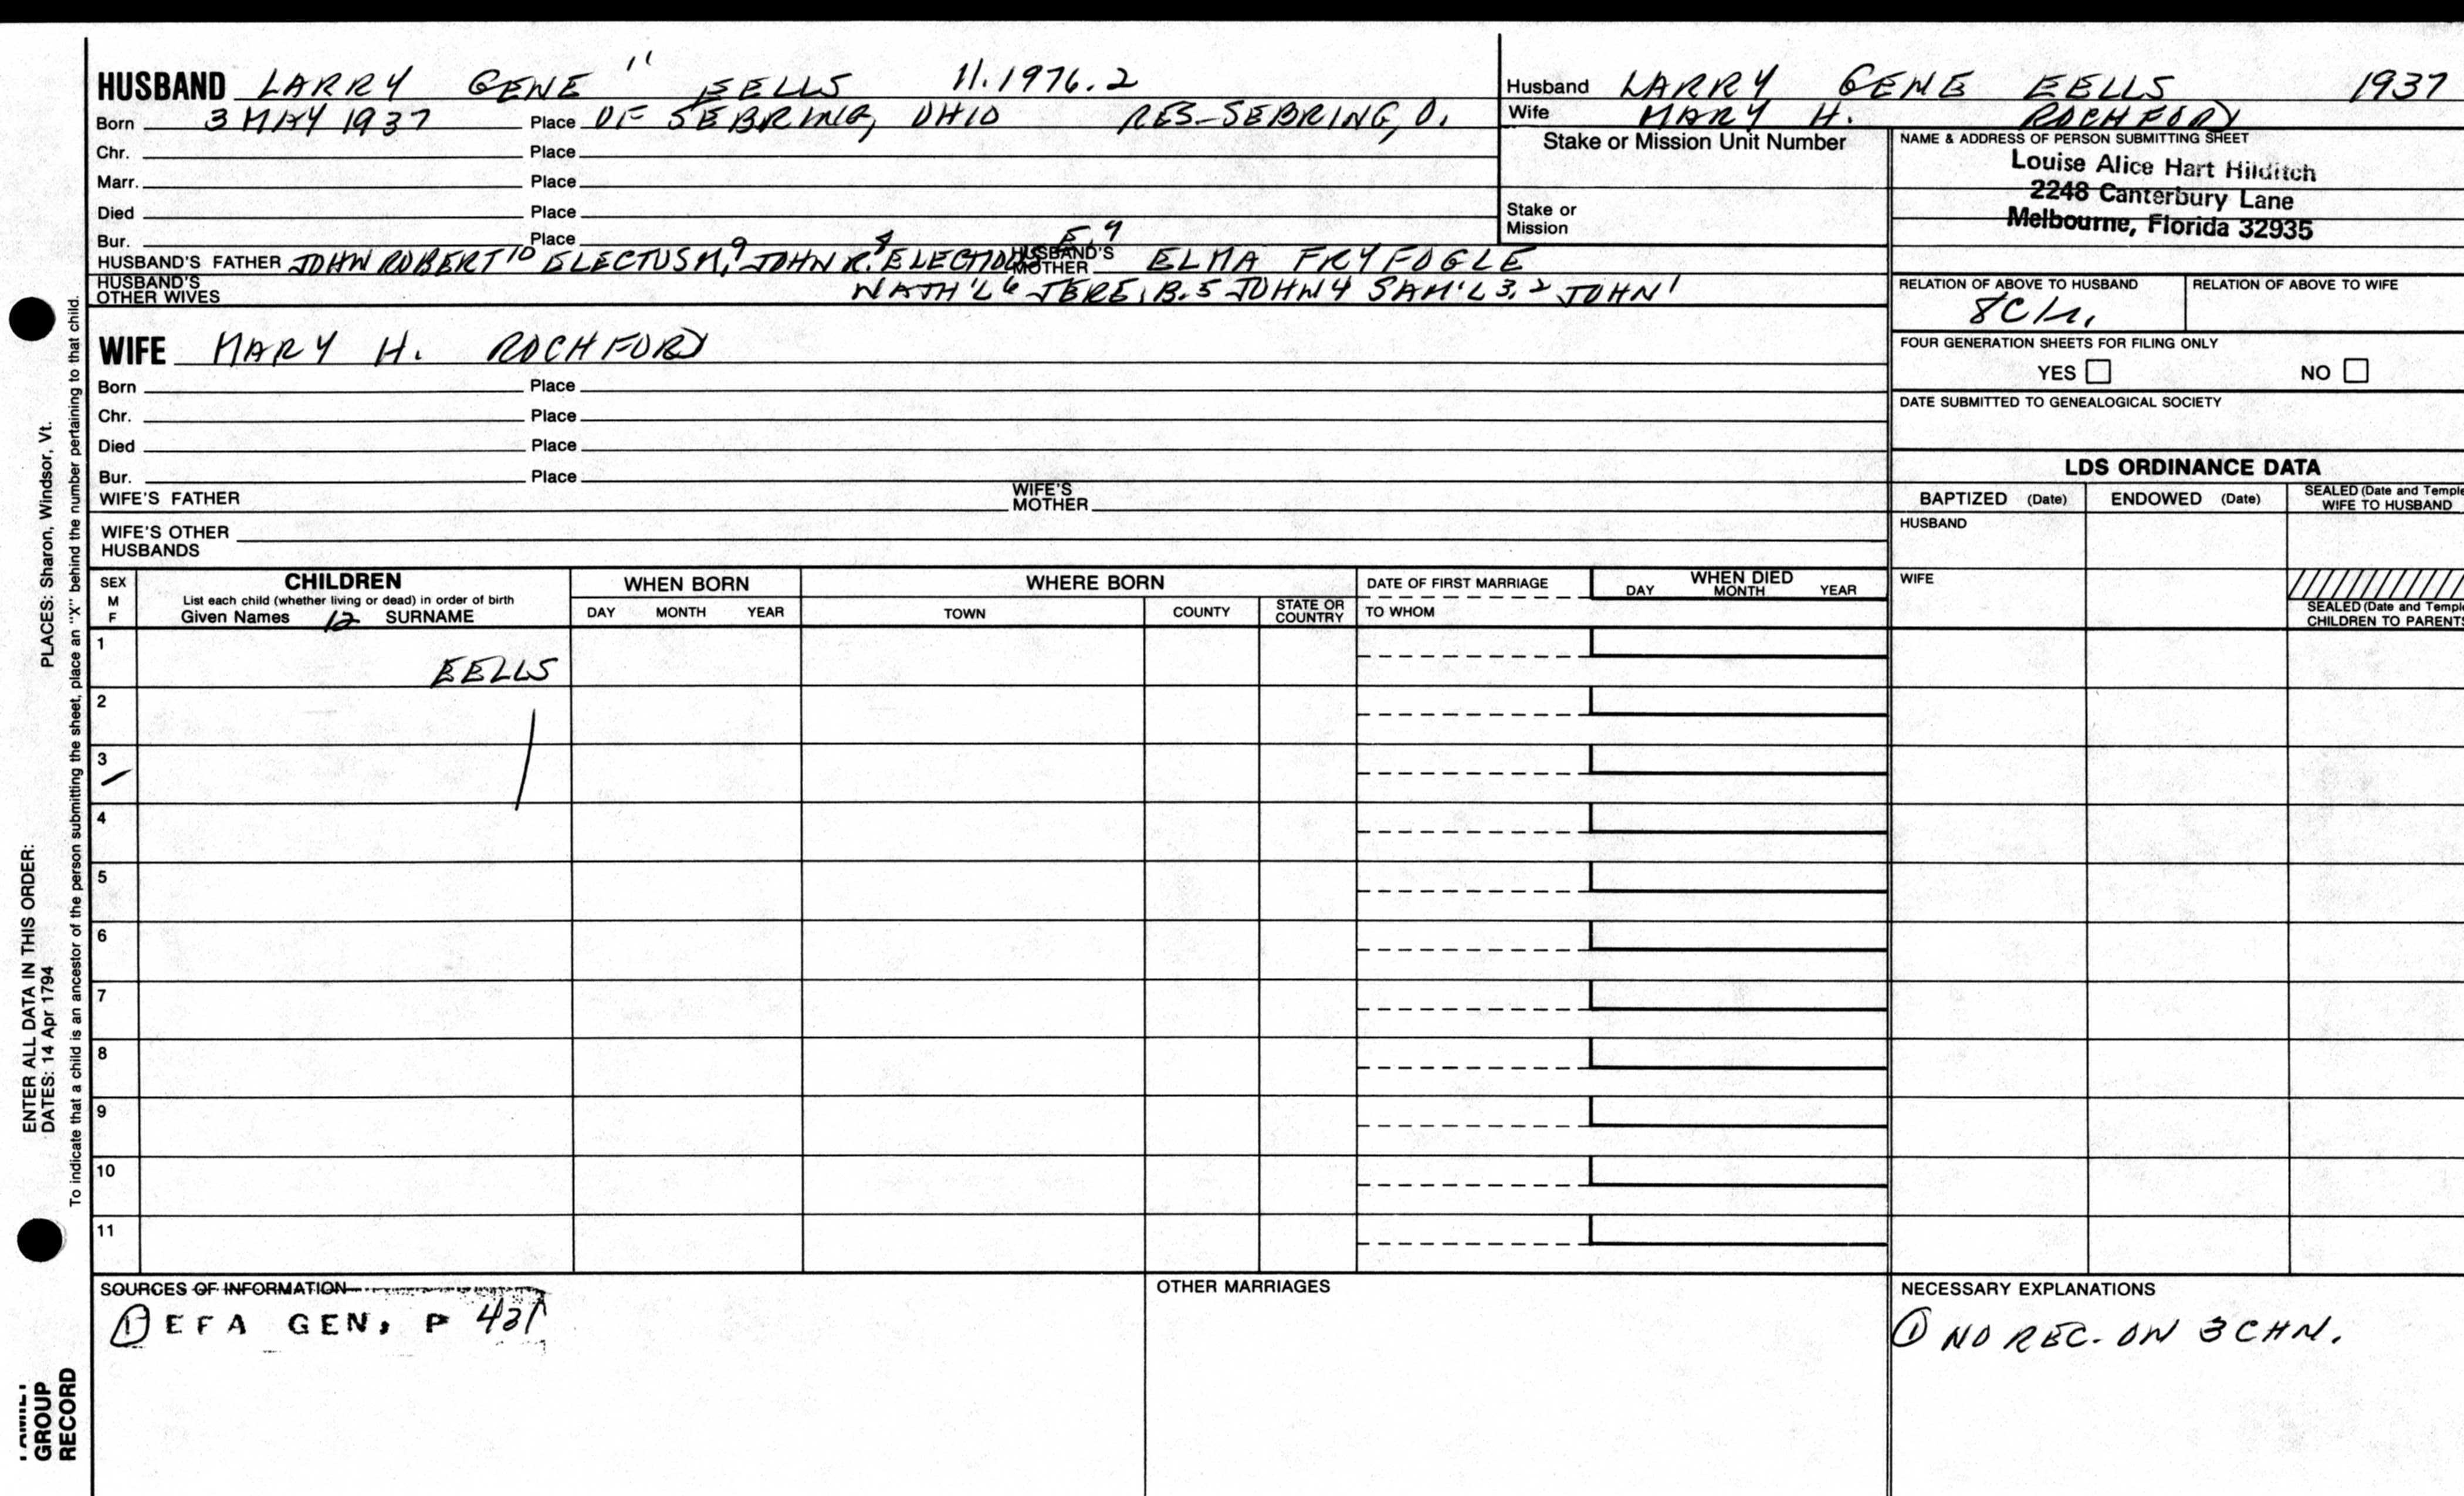 HUSBAND LARRY GENE 11 EELLS 11.1976.2
Born 3 MAY 1937 Place OF SEBRING, OHIO RES-SEBRING, O.
Chr. Place
Marr. Place
Died Place
Bur. Place
HUSBAND'S FATHER JOHN ROBERT 10 ELECTUS M, 9 JOHN R. 8 HUSBAND'S MOTHER ELMA FRYFOGLE
HUSBAND'S OTHER WIVES NATH'L 6 JERE. B. 5 JOHN 4 SAM'L 3, 2 JOHN 1
WIFE MARY H. ROCHFORD
Born Place
Chr. Place
Died Place
Bur. Place
WIFE'S FATHER WIFE'S MOTHER
WIFE'S OTHER HUSBANDS
Husband LARRY GENE EELLS 1937
Wife MARY H. ROCHFORD
Stake or Mission Unit Number
Stake or
Mission
NAME & ADDRESS OF PERSON SUBMITTING SHEET
Louise Alice Hart Hilditch
2248 Canterbury Lane
Melbourne, Florida 32935
RELATION OF ABOVE TO HUSBAND RELATION OF ABOVE TO WIFE
FOUR GENERATION SHEETS FOR FILING ONLY
YES NO
DATE SUBMITTED TO GENEALOGICAL SOCIETY
LDS ORDINANCE DATA
BAPTIZED (Date) ENDOWED (Date) SEALED (Date and Temple
WIFE TO HUSBAND
HUSBAND
WIFE
SEALED (Date and Temple
CHILDREN TO PARENTS
SEX
M
F
CHILDREN
List each child (whether living or dead) in order of birth
Given Names 12 SURNAME
WHEN BORN
DAY MONTH YEAR
WHERE BORN
TOWN COUNTY STATE OR COUNTRY
DATE OF FIRST MARRIAGE
TO WHOM
WHEN DIED
DAY MONTH YEAR
1 EELLS
2
3
4
5
6
7
8
9
10
11
SOURCES OF INFORMATION
① EFA GEN, P 431
OTHER MARRIAGES
NECESSARY EXPLANATIONS
① NO REC. ON 3 CHN.
ENTER ALL DATA IN THIS ORDER:
DATES: 14 Apr 1794 PLACES: Sharon, Windsor, Vt.
To indicate that a child is an ancestor of the person submitting the sheet, place an "X" behind the number pertaining to that child.
FAMILY
GROUP
RECORD